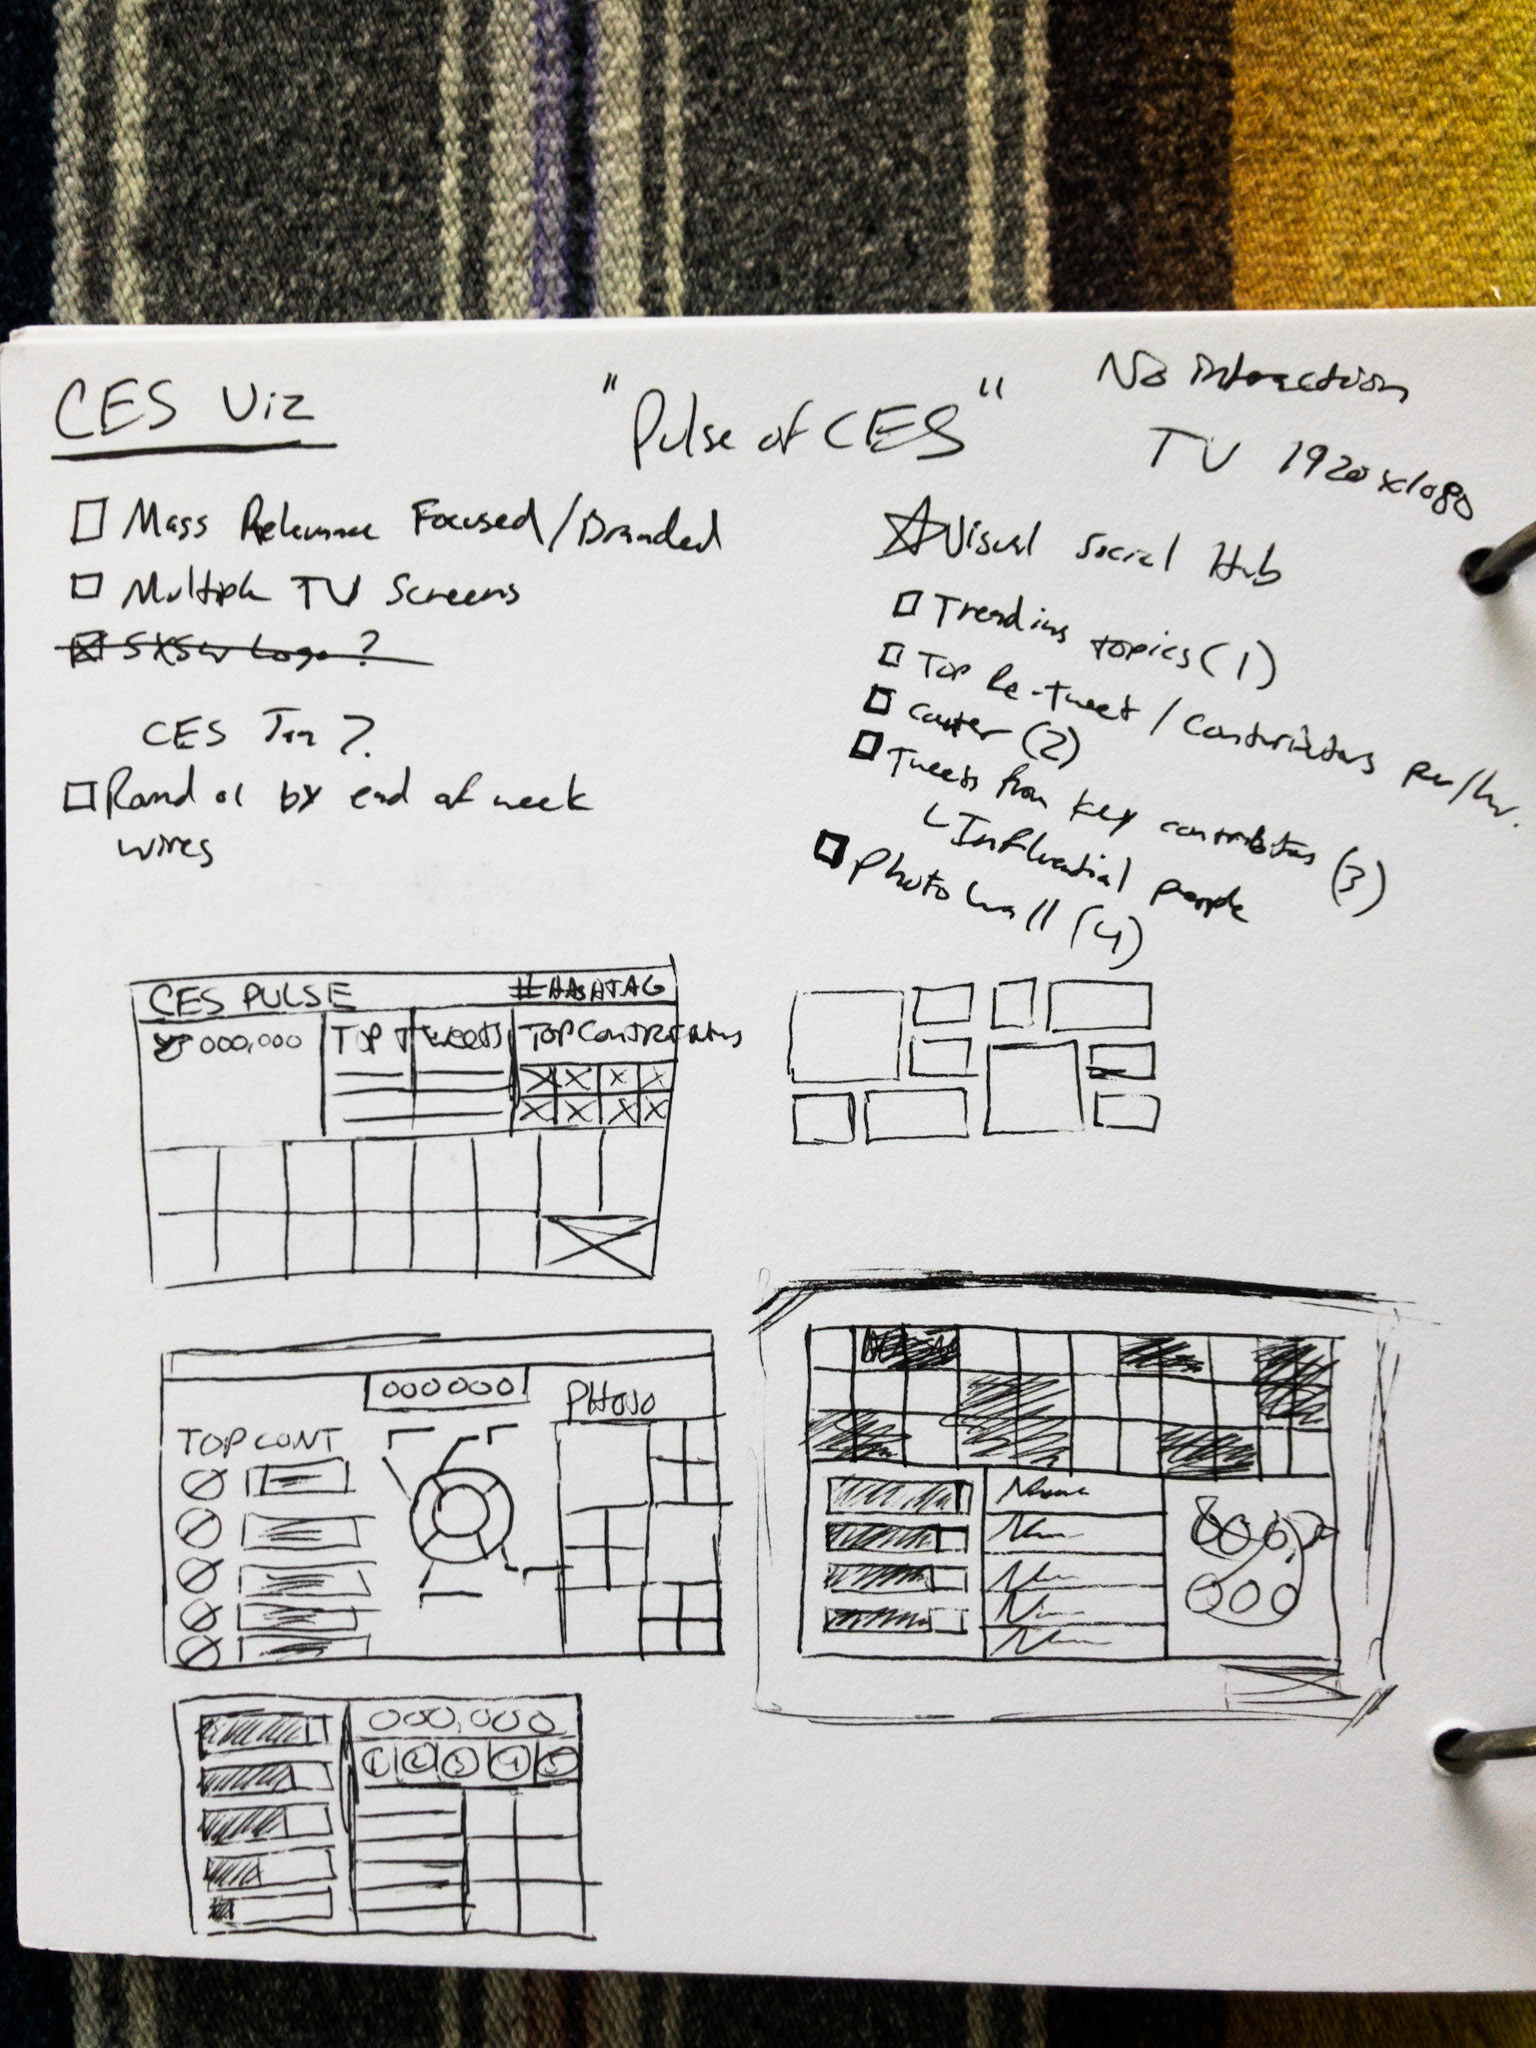 CES Viz
"Pulse of CES"
No interaction
TV 1920x1080
Mass Relevance Focused/Branded
Multiple TV Screens
SXSW Logo?
CES ?
Round 01 by end of week
wires
Visual Social Hub
Trending topics (1)
Top Re-Tweet / Contributors per/hr.
Counter (2)
Tweets from key contributors (3)
Influential people
Photo Wall (4)
CES PULSE #HASHTAG
000,000 TOP TWEETS TOP CONTRIBUTORS
000000
PHOTO
TOP CONT
Name
000,000
1 2 3 4 5